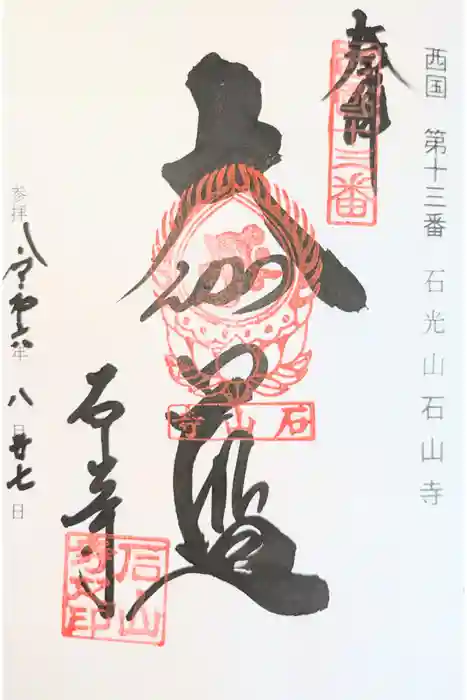 西国 第十三番 石光山石山寺
奉拝
西国十三番
大伽藍
石山寺
石山寺
石山寺
参拝 令和六年 八月廿七日